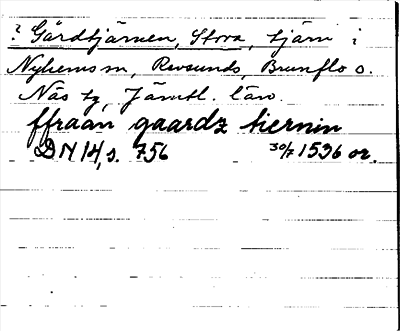 ? Gårdtjärnen, Stora, tjärn i
Nyhems sn, Revsunds, Brunflo o.
Näs tg, Jämtl. län.
ffraan gaardz tiernin
DN 14, s. 756 30/7 1536 or.